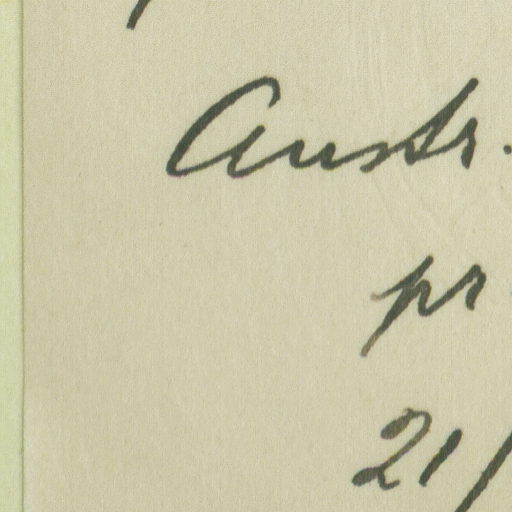 Austr.
pr
21/